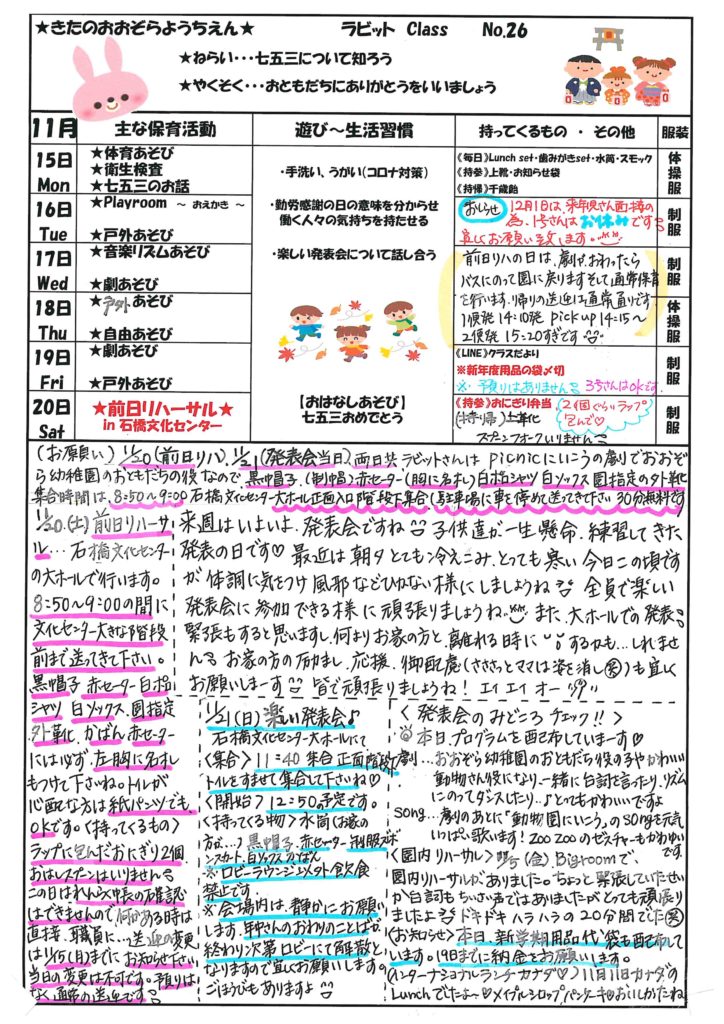 ★きたのおおぞらようちえん★　ラビット Class　No.26
★ねらい・・・七五三について知ろう
★やくそく・・・おともだちにありがとうをいいましょう
11月　主な保育活動　遊び～生活習慣　持ってくるもの ・ その他　服装
15日 Mon
★体育あそび
★衛生検査
★七五三のお話
16日 Tue
★Playroom ～ おえかき ～
★戸外あそび
17日 Wed
★音楽リズムあそび
★劇あそび
18日 Thu
★戸外あそび
★自由あそび
19日 Fri
★劇あそび
★戸外あそび
20日 Sat
★前日リハーサル★
in 石橋文化センター
・手洗い、うがい(コロナ対策)
・勤労感謝の日の意味を分からせ
働く人々の気持ちを持たせる
・楽しい発表会について話し合う
【おはなしあそび】
七五三おめでとう
《毎日》Lunch set・歯みがきset・水筒・スモック
《持参》上靴・お知らせ袋
《持帰》千歳飴
体操服
おしらせ 12月1日は、来年児さん面接の
為、1号さんはお休みです
宜しくお願い致します。
制服
前日リハの日は、劇が、おわったら
バスにのって園に戻ります そして通常保育
を行います。帰りの送迎は通常通りです
1便発 14:10発 pick up 14:15～
2便発 15:20すぎです
制服
体操服
《LINE》クラスだより
※新年度用品の袋〆切
※預りはありません 3号さんはOKです
制服
《持参》おにぎり弁当、2個ぐらいラップ包んで
《持ち帰》上靴
スプーンフォークいりません
制服
(お願い) 11/20(前日リハ)、11/21(発表会当日) 両日共、ラビットさんは picnicにいこうの劇でおおぞ
ら幼稚園のおともだちの役なので、黒中帽子、(制中帽) 赤セーター(胸に名札)白ポロシャツ 白ソックス 園指定の外靴
集合時間は、8:50～9:00 石橋文化センター大ホール正面入口階段下集合(駐車場に車を停めて送ってきて下さい 30分無料です)
11/20.(土) 前日リハーサ
ル... 石橋文化センター
の大ホールで行います。
8:50～9:00の間に
文化センター大きな階段
前まで送ってきて下さい。
黒帽子 赤セーター 白ポロ
シャツ 白ソックス 園指定
外靴、かばん 赤セーター
には必ず、左胸に名札
もつけて下さいね。トイレが
心配な方は紙パンツでも
OKです。<持ってくるもの>
ラップに包んだおにぎり2個
おはしスプーンはいりません
この日はれんらく帳の確認
はできませんので 何かある時は
直接、職員に... 送迎の変更
は11/15(月)までに お知らせ下さい
当日の変更は不可です。預りは
なく通常の送迎です
来週はいよいよ、発表会ですね 子供達が一生懸命、練習してきた
発表の日です♡ 最近は朝夕とても冷えこみ、とっても寒い今日この頃です
が体調に気をつけ風邪などひかない様にしましょうね 全員で楽しい
発表会に参加できる様に頑張りましょうね また、大ホールでの発表
緊張もすると思いますし、何よりお家の方と、離れる時に するかも...しれませ
ん お家の方の励まし、応援、御配慮(さささっとママは姿を消し(笑))も宜しく
お願いしまーす 皆で頑張りましょうね! エイ エイ オー
11/21(日) 楽しい発表会♪
石橋文化センター大ホールにて
<集合> 11:40 集合 正面階段下
トイレをすませて集合して下さいね♡
<開始> 12:50予定です。
<持ってくる物> 水筒(お家の
方が...) 黒帽子 赤セーター 制服ズボン
スカート、白ソックス かばん
※ロビーラウンジ以外飲食
禁止です。
※会場内は、静かにお願い
します。年中さんのおわりのことばが、
終わり次第ロビーにて解散と
なりますので宜しくお願いします。
ごほうびもありますよ
<発表会のみどころ チェック!!>
本日、プログラムを配布していまーす♡
劇... おおぞら幼稚園のおともだち役の子やかわいい
動物さん役になり、一緒に台詞を言ったり、リズム
にのってダンスしたり...♪とってもかわいいですよ
song... 劇のあとに「動物園にいこう」のsongを元気
いっぱい歌います! zoo zooのゼスチャーもかわいい
です。
<園内リハーサル> 11/5(金) Big roomで
園内リハーサルがありました。ちょっと緊張していたせい
か台詞もちいさい声ではありましたが とっても頑張り
ましたよ ドキドキ ハラハラの20分間でした(笑)
(お知らせ) 本日、新学期用品代袋も配布して
います。19日までに納金をお願いします。
(インターナショナルランチ カナダ♡) 11月11日カナダの
Lunchでしたよ～♡メイプルシロップパンケーキ♡おいしかたね